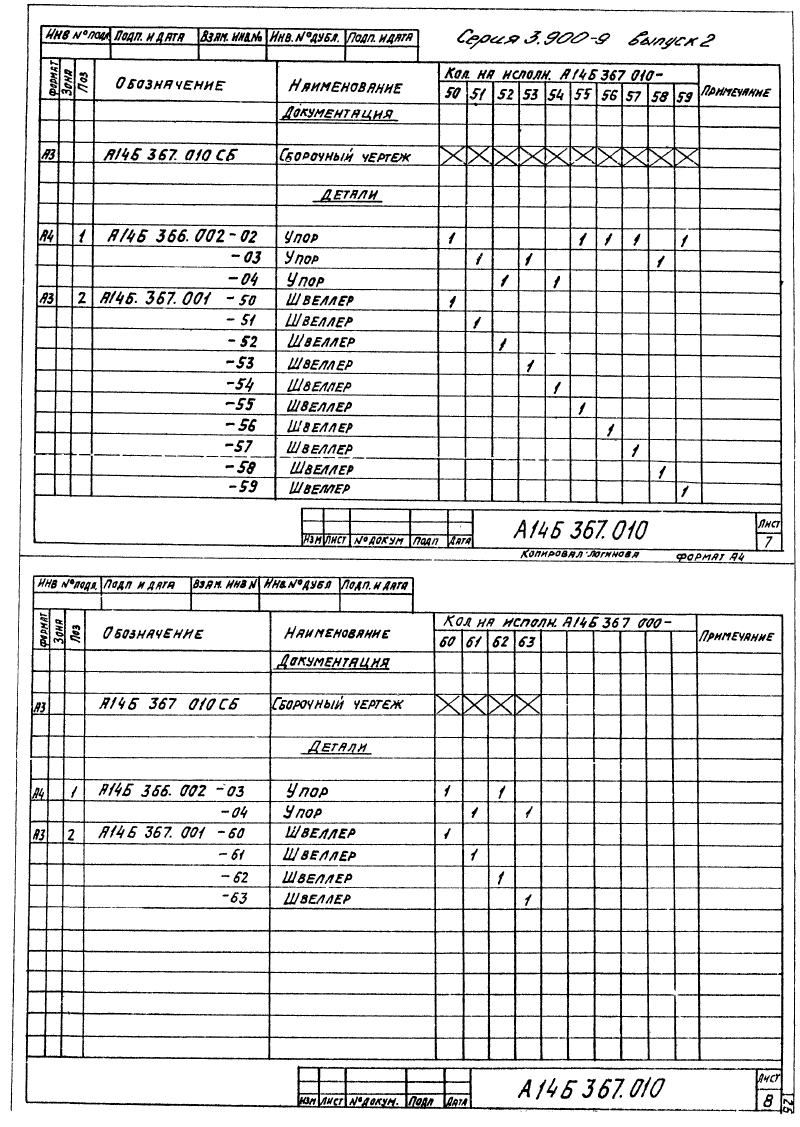 Инв № подл Подп. и дата Взам. инв.№ Инв. № дубл. Подп. и дата
Серия 3.900-9 выпуск 2
Формат Зона Поз Обозначение Наименование Кол на исполн. А14Б 367 010- Примечание
50 51 52 53 54 55 56 57 58 59
Документация
А3 А14Б 367. 010 СБ Сборочный чертеж
Детали
А4 1 А14Б 366. 002 - 02 Упор 1 1 1 1 1
- 03 Упор 1 1 1
- 04 Упор 1 1
А3 2 А14Б. 367. 001 - 50 Швеллер 1
- 51 Швеллер 1
- 52 Швеллер 1
- 53 Швеллер 1
- 54 Швеллер 1
- 55 Швеллер 1
- 56 Швеллер 1
- 57 Швеллер 1
- 58 Швеллер 1
- 59 Швеллер 1
Изм Лист № докум Подп Дата
А14Б 367. 010
Лист 7
Копировал Логинова Формат А4
Инв № подл. Подп и дата Взам. инв № Инв. № дубл Подп. и дата
Формат Зона Поз Обозначение Наименование Кол на исполн. А14Б 367 000- Примечание
60 61 62 63
Документация
А3 А14Б 367 010 СБ Сборочный чертеж
Детали
А4 1 А14Б 366. 002 - 03 Упор 1 1
- 04 Упор 1 1
А3 2 А14Б 367. 001 - 60 Швеллер 1
- 61 Швеллер 1
- 62 Швеллер 1
- 63 Швеллер 1
Изм Лист № докум. Подп Дата
А14Б 367. 010
Лист 8
26